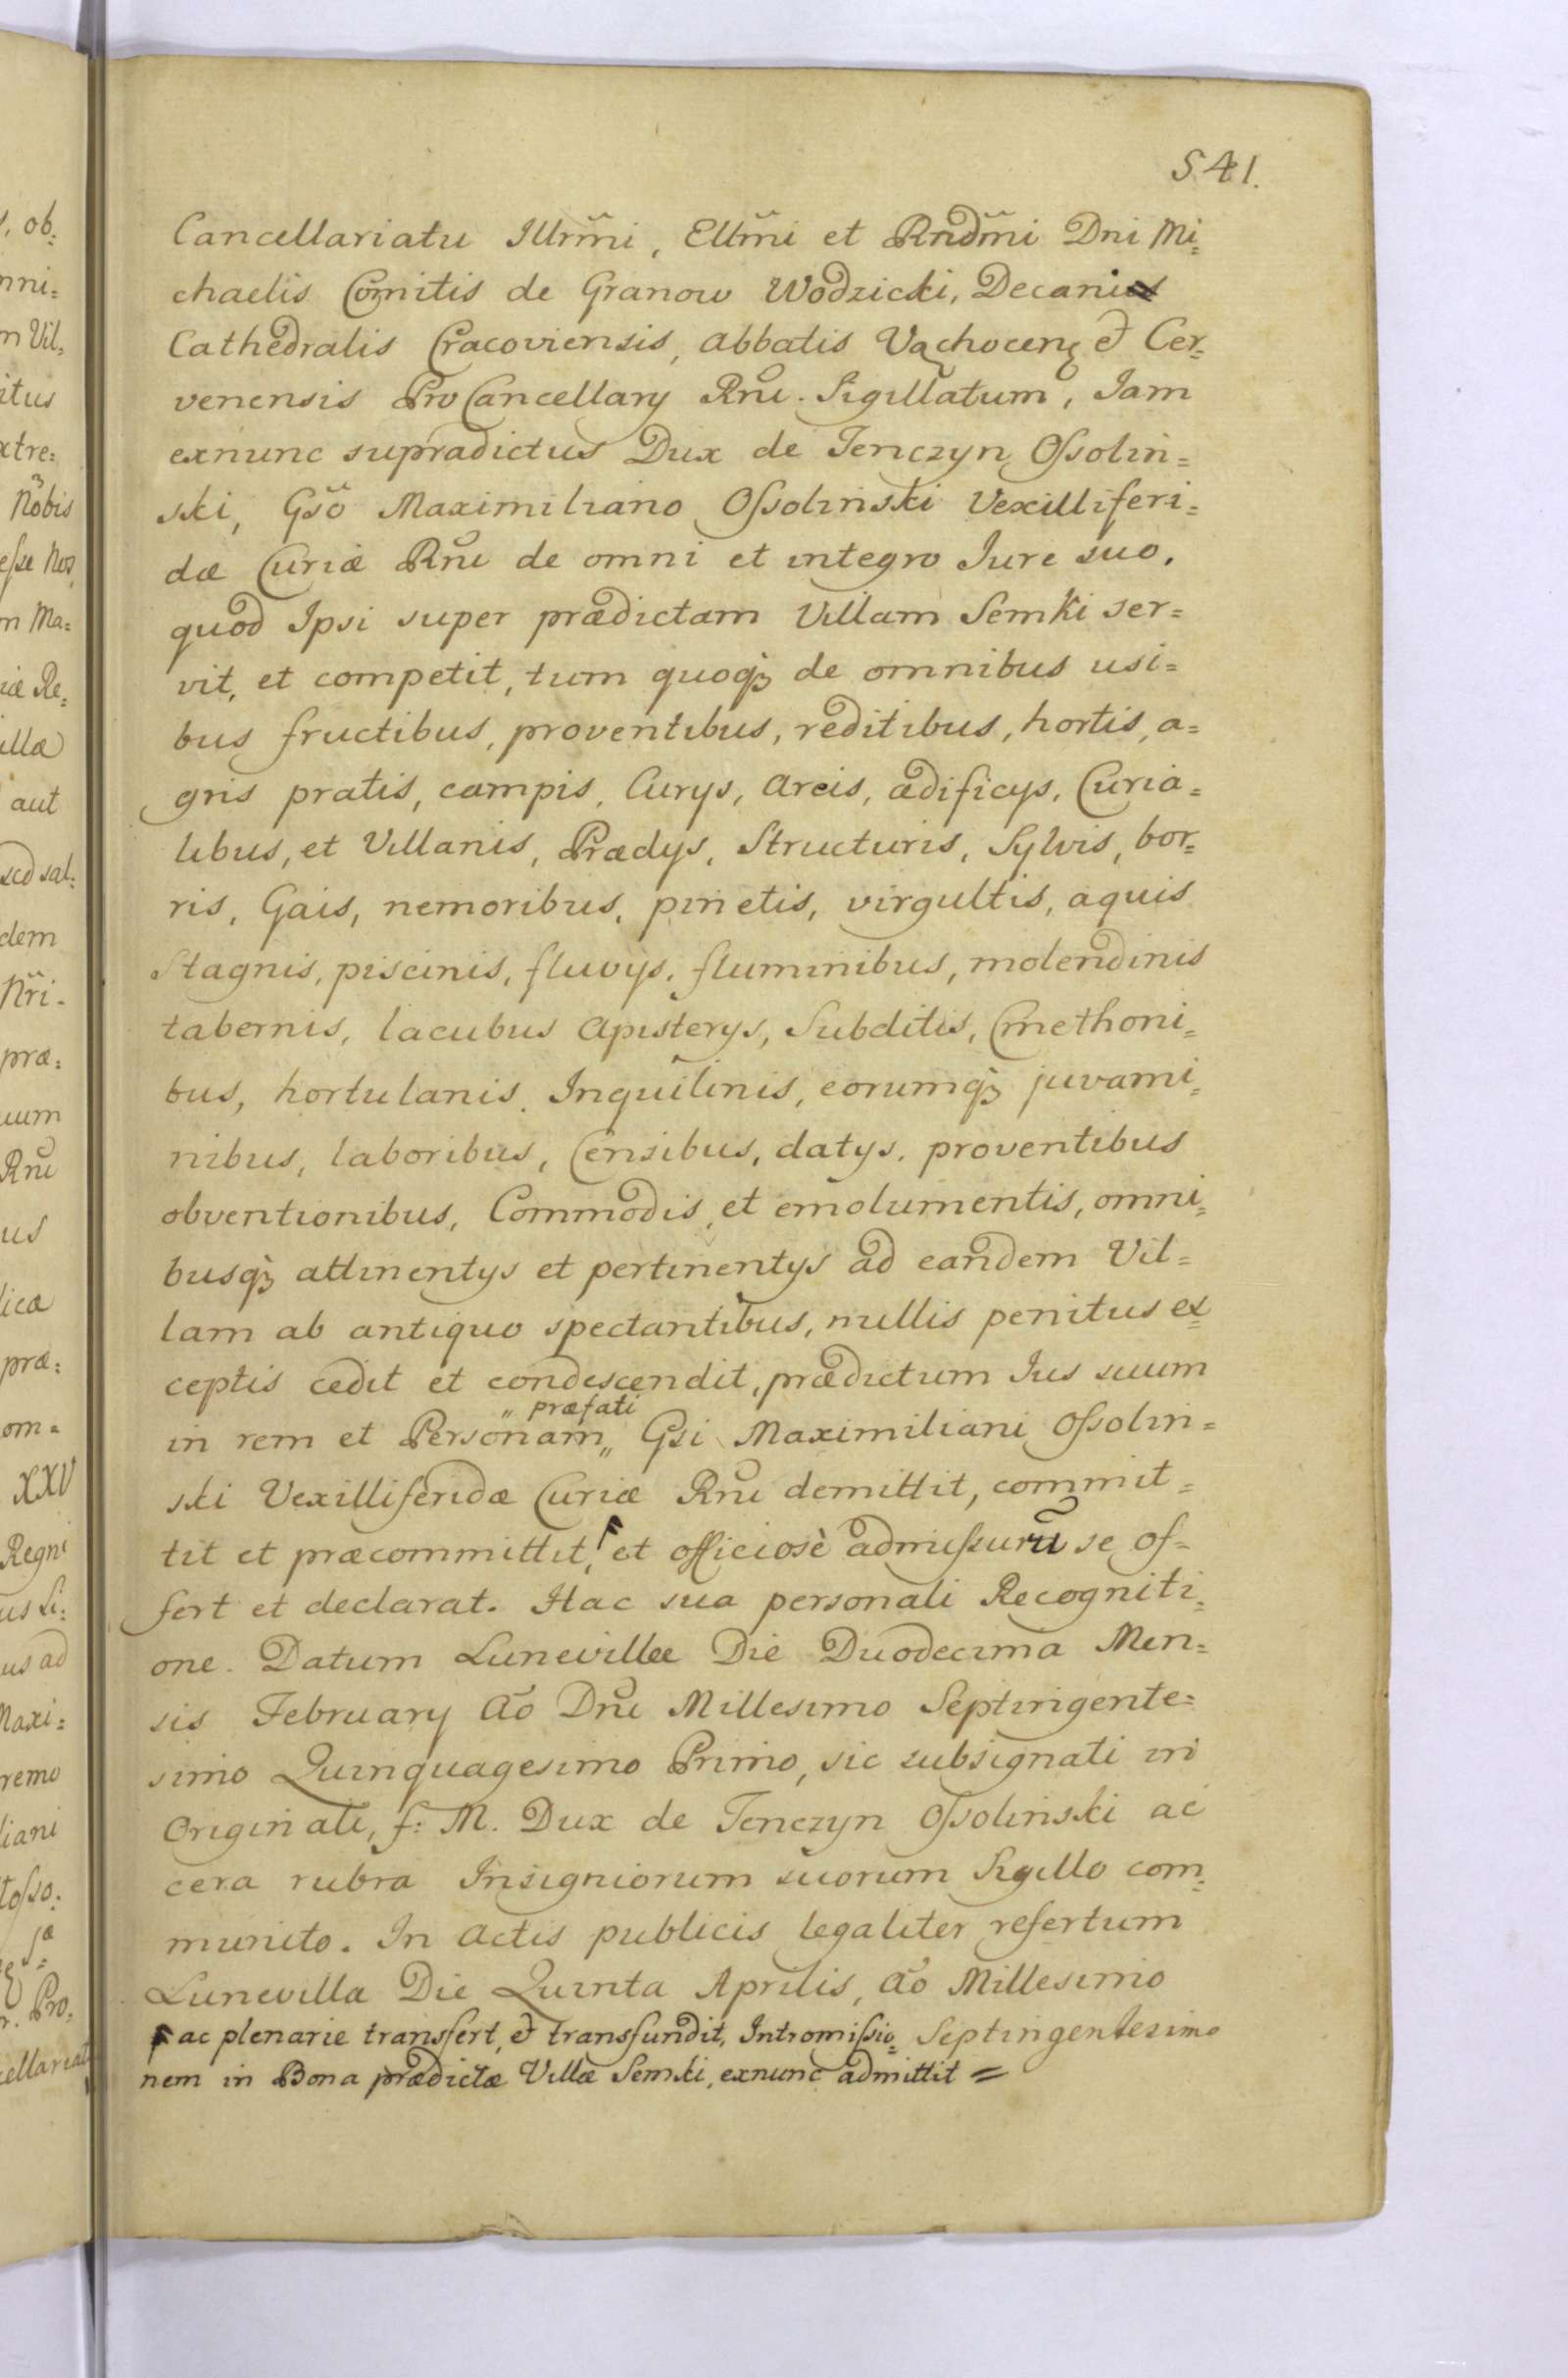 541.
Cancellariatu Illrm̃i, Ellm̃i et Rndm̃i Dni Mi=
chaelis Comitis de Granow Wodzicki, Decani
Cathedralis Cracoviensis, abbatis Vąchocenę et Cer=
venensis ProCancellarÿ Rñi. Sigillatum, Iam
exnunc supradictus Dux de Tenczyn Ossolin=
ski, Gsõ Maximiliano Ossolinski Vexilliferi=
dæ Curiæ Rñi de omni et integro Iure suo,
quod Ipsi super prædictam Villam Semki ser=
vit, et competit, tum quoqꝫ de omnibus usi=
bus fructibus, proventibus, reditibus, hortis, a=
gris pratis, campis, Curÿs, areis, ædificÿs, Curia=
libus, et Villanis, Prædÿs, Structuris, Sylvis, bor=
ris, Gais, nemoribus, pinetis, virgultis, aquis
Stagnis, piscinis, fluvÿs, fluminibus, molendinis
tabernis, lacubus apisterÿs, Subditis, Cmethoni=
bus, hortulanis, Inquilinis, eorumqꝫ juvami=
nibus, laboribus, Censibus, datÿs, proventibus
obventionibus, Commodis, et emolumentis, omni=
busqꝫ attinentÿs et pertinentÿs ad eandem Vil=
lam ab antiquo spectantibus, nullis penitus ex=
ceptis cedit et condescendit, prædictum Ius suum
„ præfati
in rem et Personam„ Gsi Maximiliani Ossolin=
ski Vexilliferidæ Curiæ Rñi demittit, commit=
tit et præcommittit, et officiosè admissurũ se of=
fert et declarat. Hac sua personali Recogniti=
one. Datum Lunevillæ Die Duodecima Men=
sis Februarÿ Ao Dñi Millesimo Septingente=
simo Quinquagesimo Primo, sic subsignati in
Originali, f: M. Dux de Tenczyn Ossolinski ac
cera rubra Insigniorum suorum Sigillo com=
munito. In Actis publicis legaliter refertum
Lunevilla Die Quinta Aprilis, Ao Millesimo
ac plenarie transfert, et transfundit, Intromissio= Septingentesimo
nem in Bona prædictæ Villæ Semki, exnunc admittit =
ob=
Vil=
itus
xtre=
Nobis
esse
m Ma=
illa
aut
sed sal=
dem
Nr̃i
præ=
Rñi
us
præ=
om=
XXV
Regni
us ad
Maxi=
remo
liani
Pro=